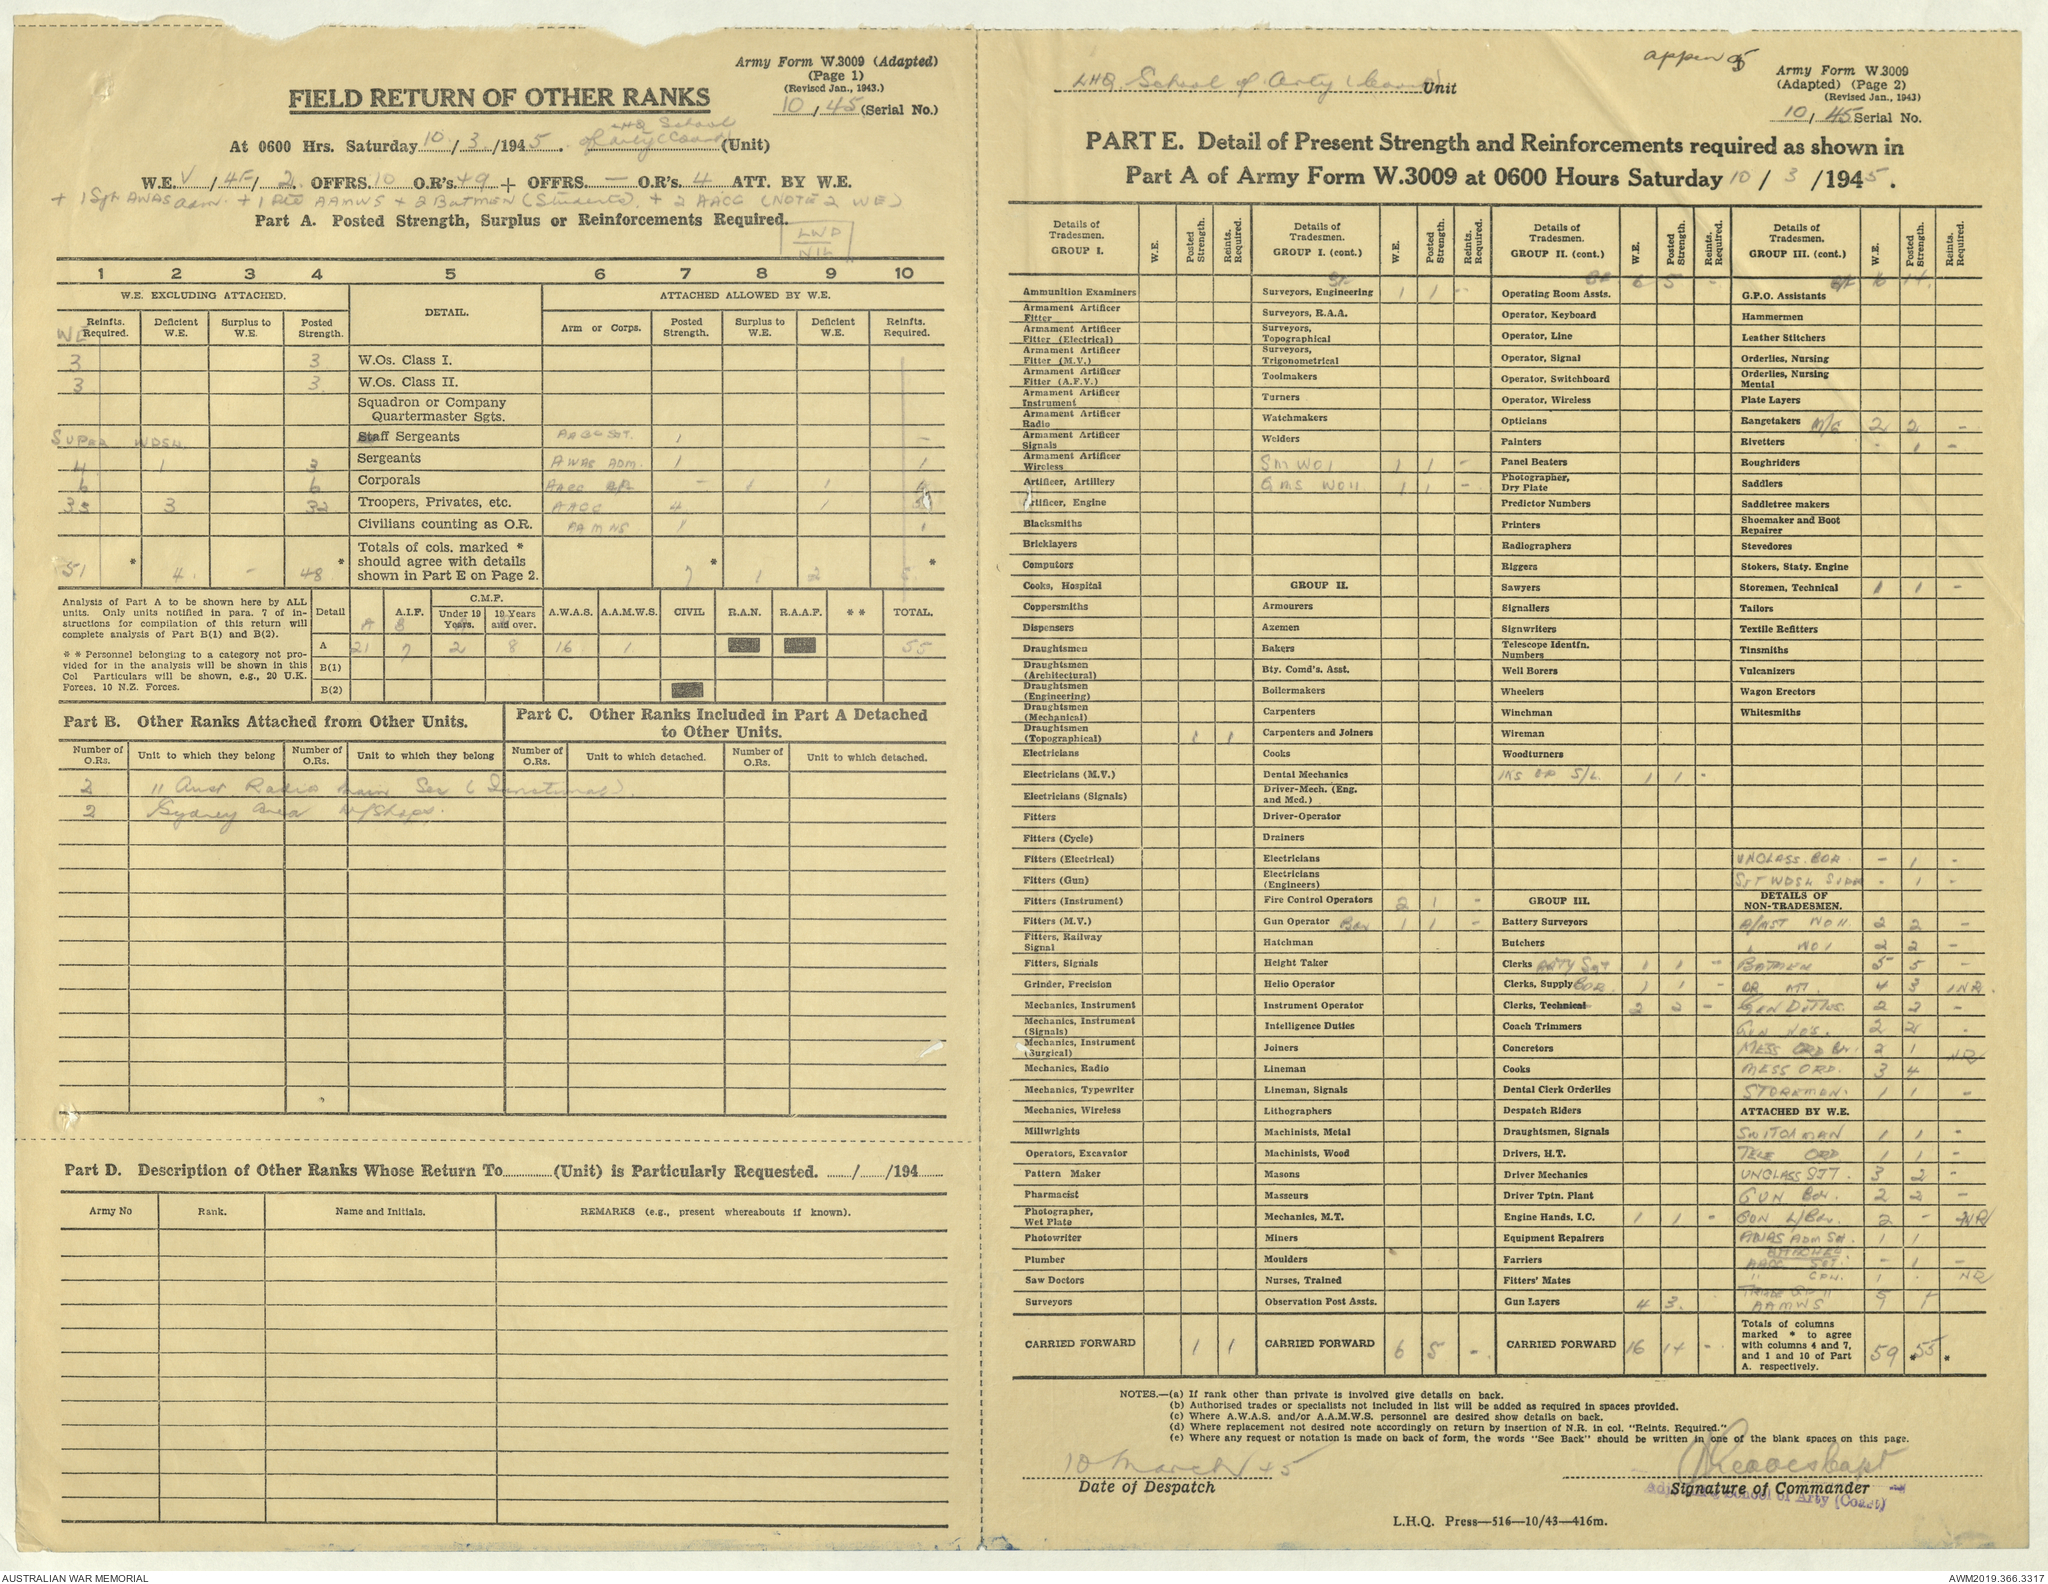 Army Form W.3009 (Adapted)
(Page 1)
(Revised Jan., 1943.)
10 / 45 (Serial No.)
FIELD RETURN OF OTHER RANKS
LHQ School
At 0600 Hrs. Saturday 10 / 3 /1945. of Arty (Coast) (Unit)
W.E. V / 4F / 2. OFFRS. 10 O.R's. 49 + OFFRS. — O.R's. 4 ATT. BY W.E.
+ 1 Sgt AWAS adm. + 1 Pte AAMWS + 2 Batmen (Students). + 2 AACC (NOTE 2 WE)
Part A. Posted Strength, Surplus or Reinforcements Required.
LWD
NIL
1 2 3 4 5 6 7 8 9 10
W.E. EXCLUDING ATTACHED. DETAIL. ATTACHED ALLOWED BY W.E.
WE Reinfts. Required. Deficient W.E. Surplus to W.E. Posted Strength. Arm or Corps. Posted Strength. Surplus to W.E. Deficient W.E. Reinfts. Required.
3 3 W.Os. Class I.
3 3 W.Os. Class II.
Squadron or Company Quartermaster Sgts.
SUPER WDSL. Staff Sergeants AACC SGT. 1 —
4 1 3 Sergeants AWAS ADM. 1 1
6 6 Corporals AACC — 1 1
35 3 32 Troopers, Privates, etc. AACC 4 1
Civilians counting as O.R. AAMWS 1 1
51 * 4 - 48 * Totals of cols. marked * should agree with details shown in Part E on Page 2. 7 * 1 2 *
Analysis of Part A to be shown here by ALL units. Only units notified in para. 7 of instructions for compilation of this return will complete analysis of Part B(1) and B(2).
* * Personnel belonging to a category not provided for in the analysis will be shown in this Col Particulars will be shown, e.g., 20 U.K. Forces, 10 N.Z. Forces.
Detail A.I.F. C.M.F. Under 19 Years. 19 Years and over. A.W.A.S. A.A.M.W.S. CIVIL R.A.N. R.A.A.F. * * TOTAL.
A B
A 21 7 2 8 16 1 55
B(1)
B(2)
Part B. Other Ranks Attached from Other Units.
Part C. Other Ranks Included in Part A Detached to Other Units.
Number of O.Rs. Unit to which they belong Number of O.Rs. Unit to which they belong Number of O.Rs. Unit to which detached. Number of O.Rs. Unit to which detached.
2 11 Aust Radio Main Sec
2 Sydney Area W/Shops.
Part D. Description of Other Ranks Whose Return To ............ (Unit) is Particularly Requested. ....../....../194......
Army No Rank. Name and Initials. REMARKS (e.g., present whereabouts if known).
appen
LHQ School of Arty (Coast) Unit
Army Form W.3009
(Adapted) (Page 2)
(Revised Jan., 1943)
10 / 45 Serial No.
PART E. Detail of Present Strength and Reinforcements required as shown in
Part A of Army Form W.3009 at 0600 Hours Saturday 10 / 3 /1945.
Details of Tradesmen. GROUP I. W.E. Posted Strength. Reints. Required.
Ammunition Examiners
Armament Artificer Fitter
Armament Artificer Fitter (Electrical)
Armament Artificer Fitter (M.V.)
Armament Artificer Fitter (A.F.V.)
Armament Artificer Instrument
Armament Artificer Radio
Armament Artificer Signals
Armament Artificer Wireless
Artificer, Artillery
Artificer, Engine
Blacksmiths
Bricklayers
Computors
Cooks, Hospital
Coppersmiths
Dispensers
Draughtsmen
Draughtsmen (Architectural)
Draughtsmen (Engineering)
Draughtsmen (Mechanical)
Draughtsmen (Topographical) 1 1
Electricians
Electricians (M.V.)
Electricians (Signals)
Fitters
Fitters (Cycle)
Fitters (Electrical)
Fitters (Gun)
Fitters (Instrument)
Fitters (M.V.)
Fitters, Railway Signal
Fitters, Signals
Grinder, Precision
Mechanics, Instrument
Mechanics, Instrument (Signals)
Mechanics, Instrument (Surgical)
Mechanics, Radio
Mechanics, Typewriter
Mechanics, Wireless
Millwrights
Operators, Excavator
Pattern Maker
Pharmacist
Photographer, Wet Plate
Photowriter
Plumber
Saw Doctors
Surveyors
CARRIED FORWARD 1 1
Details of Tradesmen. GROUP I. (cont.) W.E. Posted Strength. Reints. Required.
Surveyors, Engineering 1 1 -
Surveyors, R.A.A.
Surveyors, Topographical
Surveyors, Trigonometrical
Toolmakers
Turners
Watchmakers
Welders
SM WO1 1 1 -
QMS WO11 1 1 -
GROUP II.
Armourers
Axemen
Bakers
Bty. Comd's. Asst.
Boilermakers
Carpenters
Carpenters and Joiners
Cooks
Dental Mechanics
Driver-Mech. (Eng. and Med.)
Driver-Operator
Drainers
Electricians
Electricians (Engineers)
Fire Control Operators 2 1 -
Gun Operator Bdr 1 1 -
Hatchman
Height Taker
Helio Operator
Instrument Operator
Intelligence Duties
Joiners
Lineman
Lineman, Signals
Lithographers
Machinists, Metal
Machinists, Wood
Masons
Masseurs
Mechanics, M.T.
Miners
Moulders
Nurses, Trained
Observation Post Assts.
CARRIED FORWARD 6 5 -
Details of Tradesmen. GROUP II. (cont.) W.E. Posted Strength. Reints. Required.
6 5 -
Operating Room Assts.
Operator, Keyboard
Operator, Line
Operator, Signal
Operator, Switchboard
Operator, Wireless
Opticians
Painters
Panel Beaters
Photographer, Dry Plate
Predictor Numbers
Printers
Radiographers
Riggers
Sawyers
Signallers
Signwriters
Telescope Identfn. Numbers
Well Borers
Wheelers
Winchman
Wireman
Woodturners
INS OP S/L. 1 1 -
GROUP III.
Battery Surveyors
Butchers
Clerks ARTY Sgt 1 1 -
Clerks, Supply BDR. 1 1 -
Clerks, Technical 2 2 -
Coach Trimmers
Concretors
Cooks
Dental Clerk Orderlies
Despatch Riders
Draughtsmen, Signals
Drivers, H.T.
Driver Mechanics
Driver Tptn. Plant
Engine Hands, I.C. 1 1 -
Equipment Repairers
Farriers
Fitters' Mates
Gun Layers 4 3.
CARRIED FORWARD 16 14 -
Details of Tradesmen. GROUP III. (cont.) W.E. Posted Strength. Reints. Required.
B/F 16 14.
G.P.O. Assistants
Hammermen
Leather Stitchers
Orderlies, Nursing
Orderlies, Nursing Mental
Plate Layers
Rangetakers M/G 2 2 -
Rivetters - 1 -
Roughriders
Saddlers
Saddletree makers
Shoemaker and Boot Repairer
Stevedores
Stokers, Staty. Engine
Storemen, Technical 1 1 -
Tailors
Textile Refitters
Tinsmiths
Vulcanizers
Wagon Erectors
Whitesmiths
UNCLASS. BDR. - 1 -
SGT WDSL - 1 -
DETAILS OF NON-TRADESMEN.
WO11. 2 2 -
WO1 2 2 -
BATMEN 5 5 -
DR MT. 4 3 1NR.
GEN DUTIES. 2 2 -
GUN NO'S. 2 2 .
MESS ORD 2 1 NR
MESS ORD. 3 4
STOREMAN. 1 1 -
ATTACHED BY W.E.
1 1 -
TELE ORD 1 1 -
UNCLASS 3 2 -
GUN Bdr. 2 2 -
GUN L/Br. 2 - NR
AWAS ADM 1 1
ATTACHED.
AACC SGT. - 1 -
" CPL. 1 . NR
TRADE GP II 5
AAMWS 1 1
Totals of columns marked * to agree with columns 4 and 7, and 1 and 10 of Part A. respectively. 59 *55 *
NOTES.—(a) If rank other than private is involved give details on back.
(b) Authorised trades or specialists not included in list will be added as required in spaces provided.
(c) Where A.W.A.S. and/or A.A.M.W.S. personnel are desired show details on back.
(d) Where replacement not desired note accordingly on return by insertion of N.R. in col. "Reints. Required."
(e) Where any request or notation is made on back of form, the words "See Back" should be written in one of the blank spaces on this page.
10 March 45
Date of Despatch
Capt
Signature of Commander
School of Arty (Coast)
L.H.Q. Press—516—10/43—416m.
AUSTRALIAN WAR MEMORIAL
AWM2019.366.3317